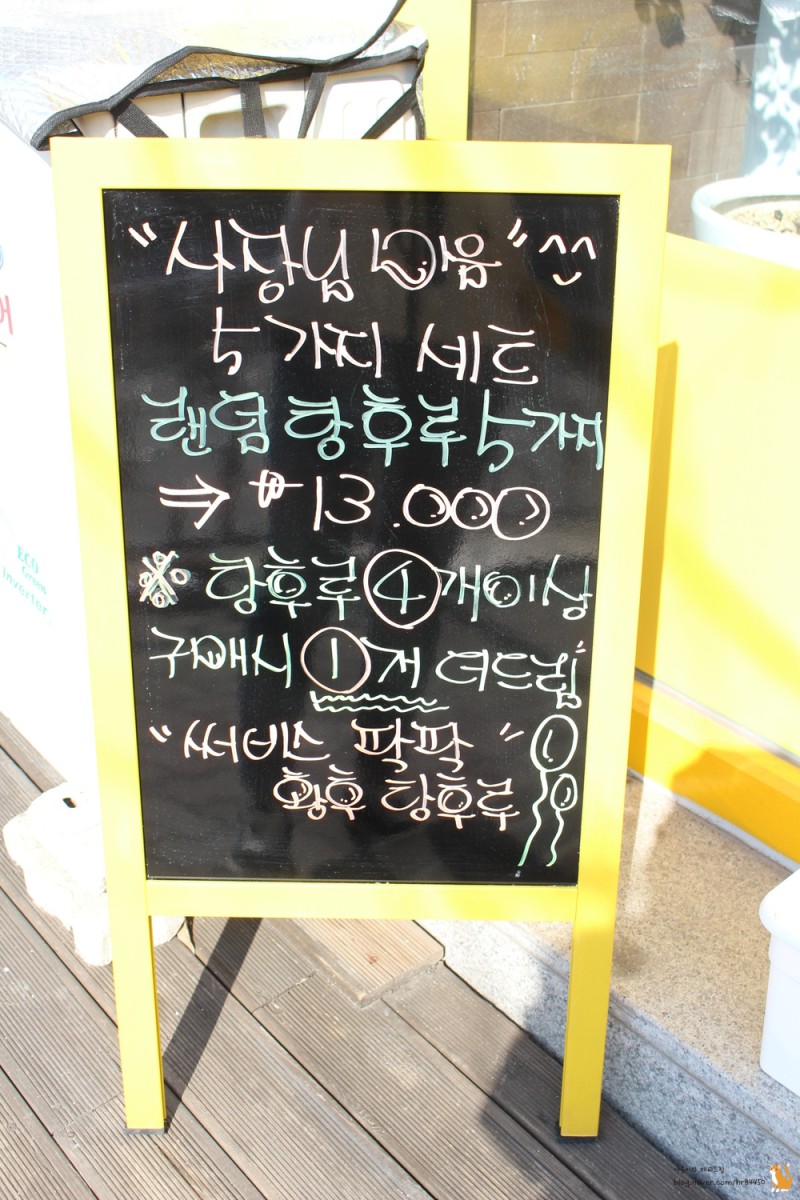 "사장님 마음" ^^
5가지 세트
랜덤 탕후루 5가지
⇒ ₩13.000
※ 탕후루 ④개이상
구매시 ①개 더드림
"써비스 팍팍"
황후 탕후루
ECO
Green
inverter
blog.naver.com/hr84450